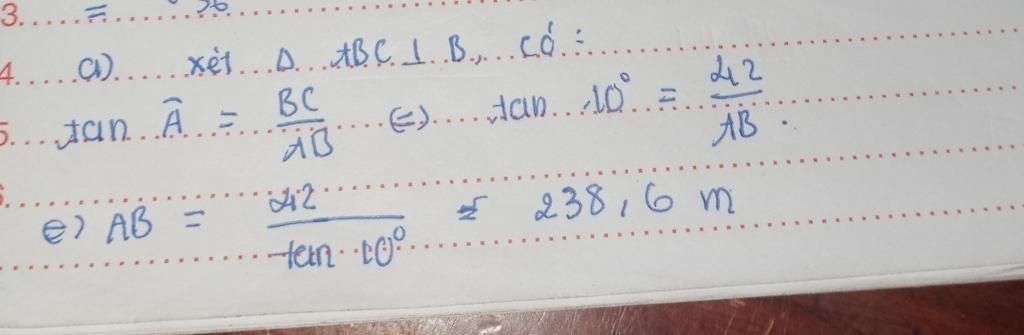 3. =
4. a) xét Δ ABC ⊥ B, có :
5. tan Â = BC/AB ⇔ tan 10° = 42/AB .
⇔ AB = 42/tan 10° = 238,6 m